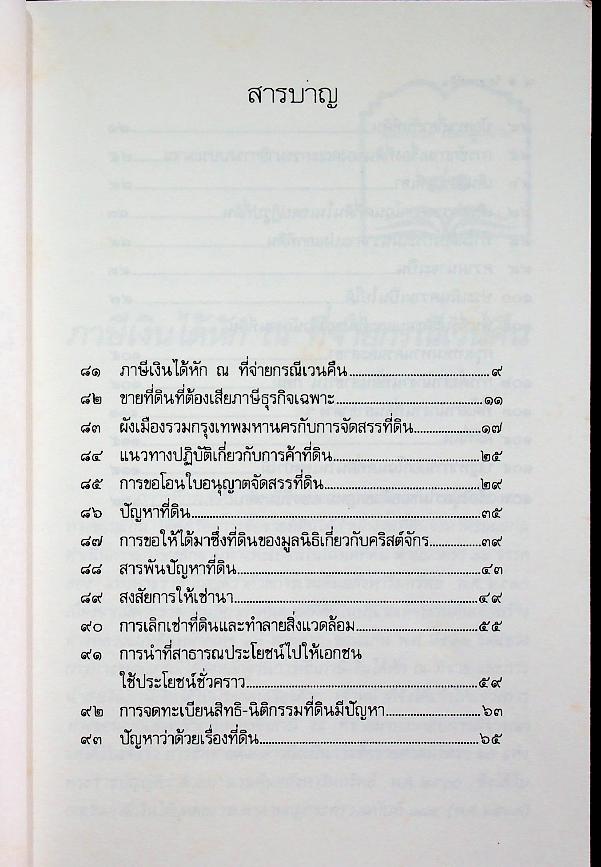 สารบาญ
๘๑ ภาษีเงินได้หัก ณ ที่จ่ายกรณีเวนคืน....................................๙
๘๒ ขายที่ดินที่ต้องเสียภาษีธุรกิจเฉพาะ....................................๑๑
๘๓ ผังเมืองรวมกรุงเทพมหานครกับการจัดสรรที่ดิน.................๑๗
๘๔ แนวทางปฏิบัติเกี่ยวกับการค้าที่ดิน....................................๒๕
๘๕ การขอโอนใบอนุญาตจัดสรรที่ดิน......................................๒๙
๘๖ ปัญหาที่ดิน........................................................................๓๕
๘๗ การขอให้ได้มาซึ่งที่ดินของมูลนิธิเกี่ยวกับคริสต์จักร.............๓๙
๘๘ สารพันปัญหาที่ดิน.............................................................๔๓
๘๙ สงสัยการให้เช่านา.............................................................๔๙
๙๐ การเลิกเช่าที่ดินและทำลายสิ่งแวดล้อม...............................๕๕
๙๑ การนำที่สาธารณประโยชน์ไปให้เอกชน
ใช้ประโยชน์ชั่วคราว..........................................................๕๙
๙๒ การจดทะเบียนสิทธิ-นิติกรรมที่ดินมีปัญหา........................๖๓
๙๓ ปัญหาว่าด้วยเรื่องที่ดิน.......................................................๖๕